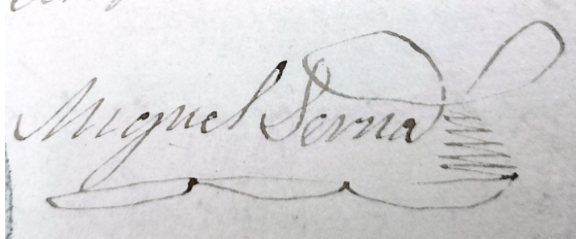 Miguel Serna